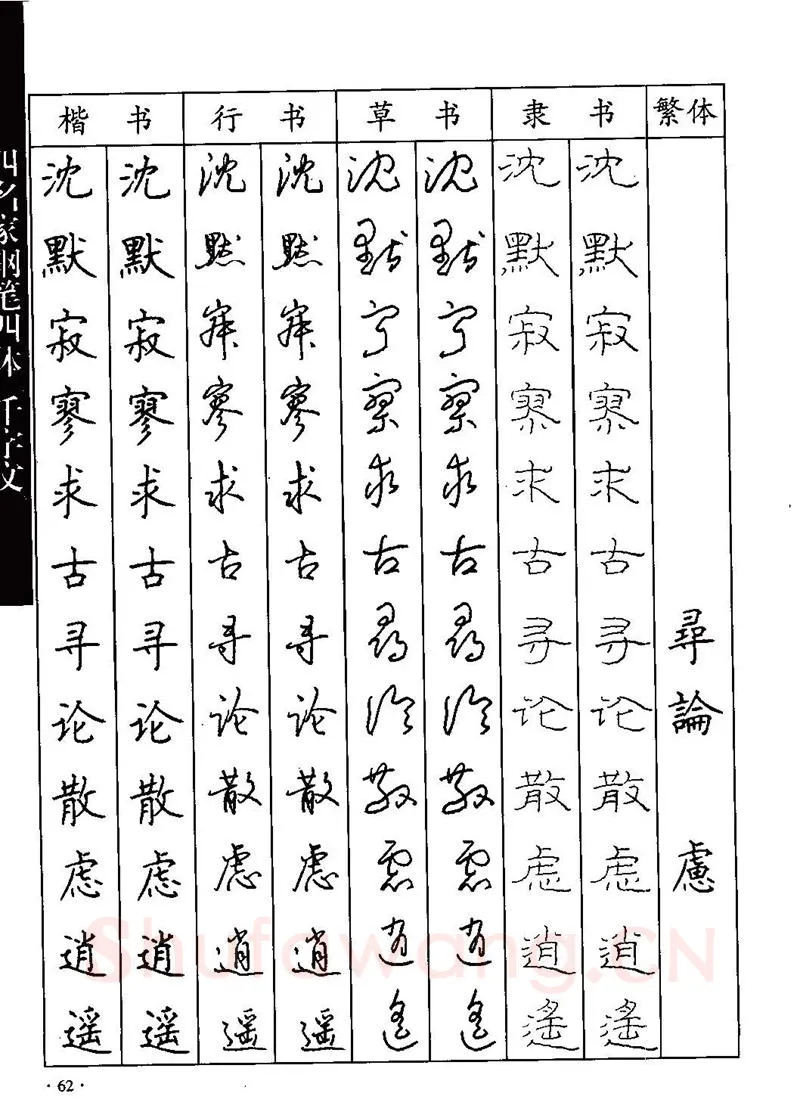 四名家钢笔四体千字文
楷书 行书 草书 隶书 繁体
沈 沈 沈 沈 沈 沈 沈 沈
默 默 默 默 默 默 默 默
寂 寂 寂 寂 寂 寂 寂 寂
寥 寥 寥 寥 寥 寥 寥 寥
求 求 求 求 求 求 求 求
古 古 古 古 古 古 古 古
寻 寻 寻 寻 尋 尋 寻 寻 尋
论 论 论 论 論 論 论 论 論
散 散 散 散 散 散 散 散
虑 虑 虑 虑 慮 慮 虑 虑 慮
逍 逍 逍 逍 逍 逍 逍 逍
遥 遥 遥 遥 遥 遥 遥 遥
Shufawang.CN
·62·